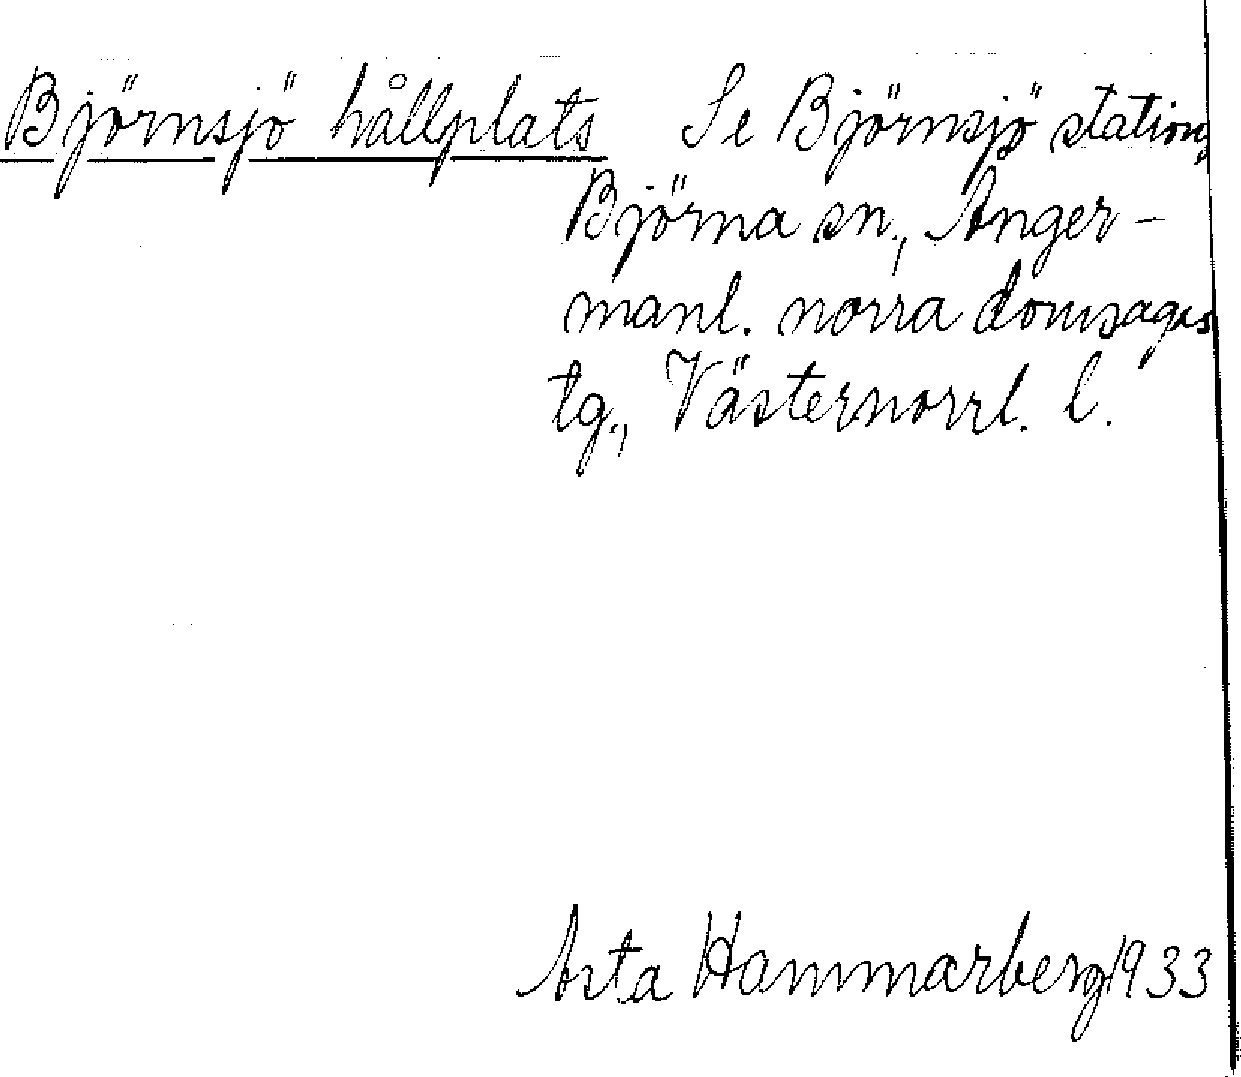 Björnsjö hållplats Se Björnsjö station,
Björna sn., Anger-
manl. norra domsagas
tg., Västernorrl. l.
Asta Hammarberg 1933